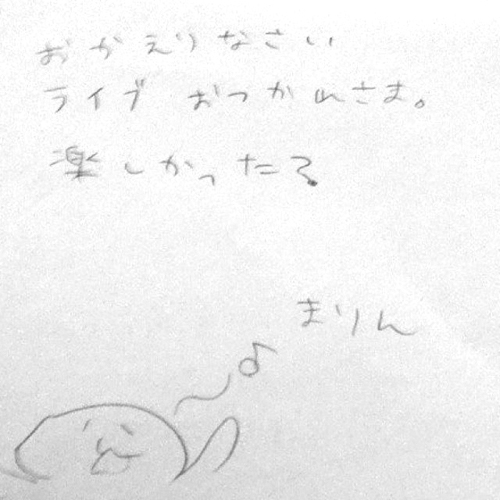 おかえりなさい
ライブ おつかれさま。
楽しかった?
まりん